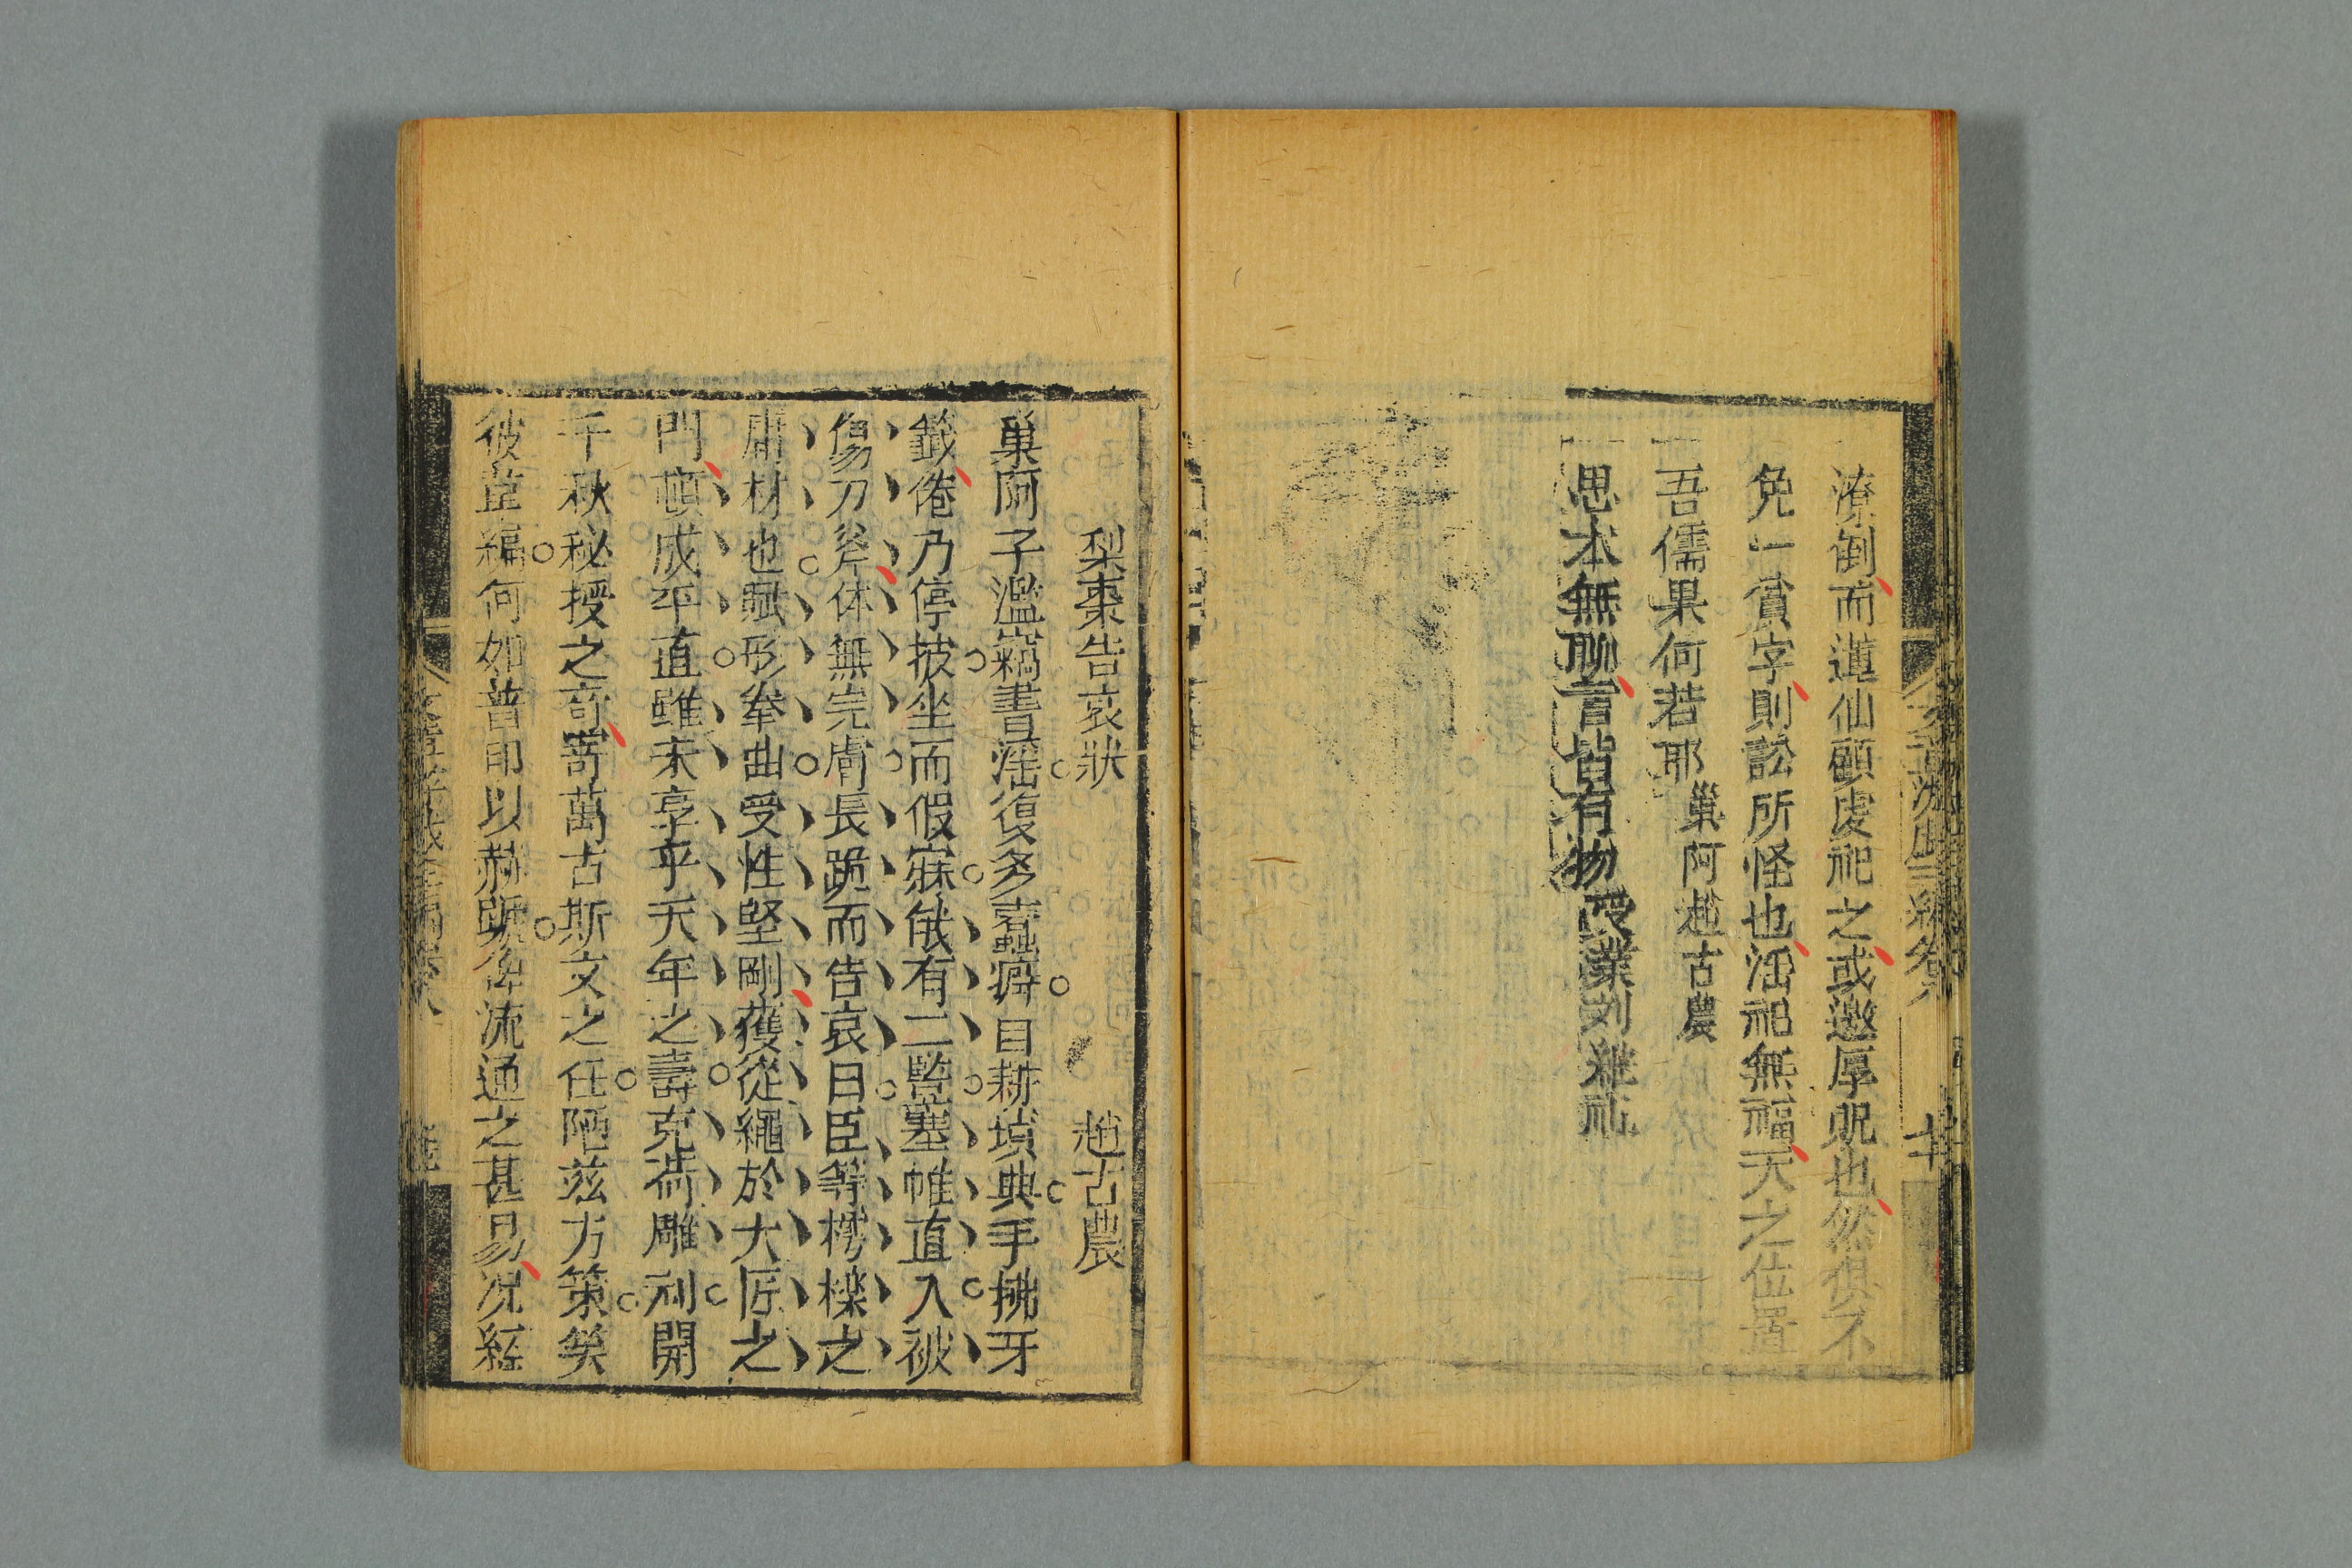 潦倒而遣仙顧虔祀之或邀厚貺也然俱不
免一貪字則訟所怪也淫祀無福天之位置
吾儒果何若耶 巢阿趙古農
思本無聊言皆有物 受業刘維祀
梨棗告哀狀 趙古農
巢阿子濫竊書淫復多蠹癖目耕墳典手拂牙
籤倦乃停披坐而假寐俄有二豎塞帷直入被
傷刀斧体無完膚長跪而告哀曰臣等樗櫟之
庸材也賦形拳曲受性堅剛獲從繩於大匠之
門頓成平直雖未享乎天年之壽克荷雕刊開
千秋秘授之奇嵜萬古斯文之任陋兹方策矣
彼 編何如普印以赫蹏俾流通之甚易况經